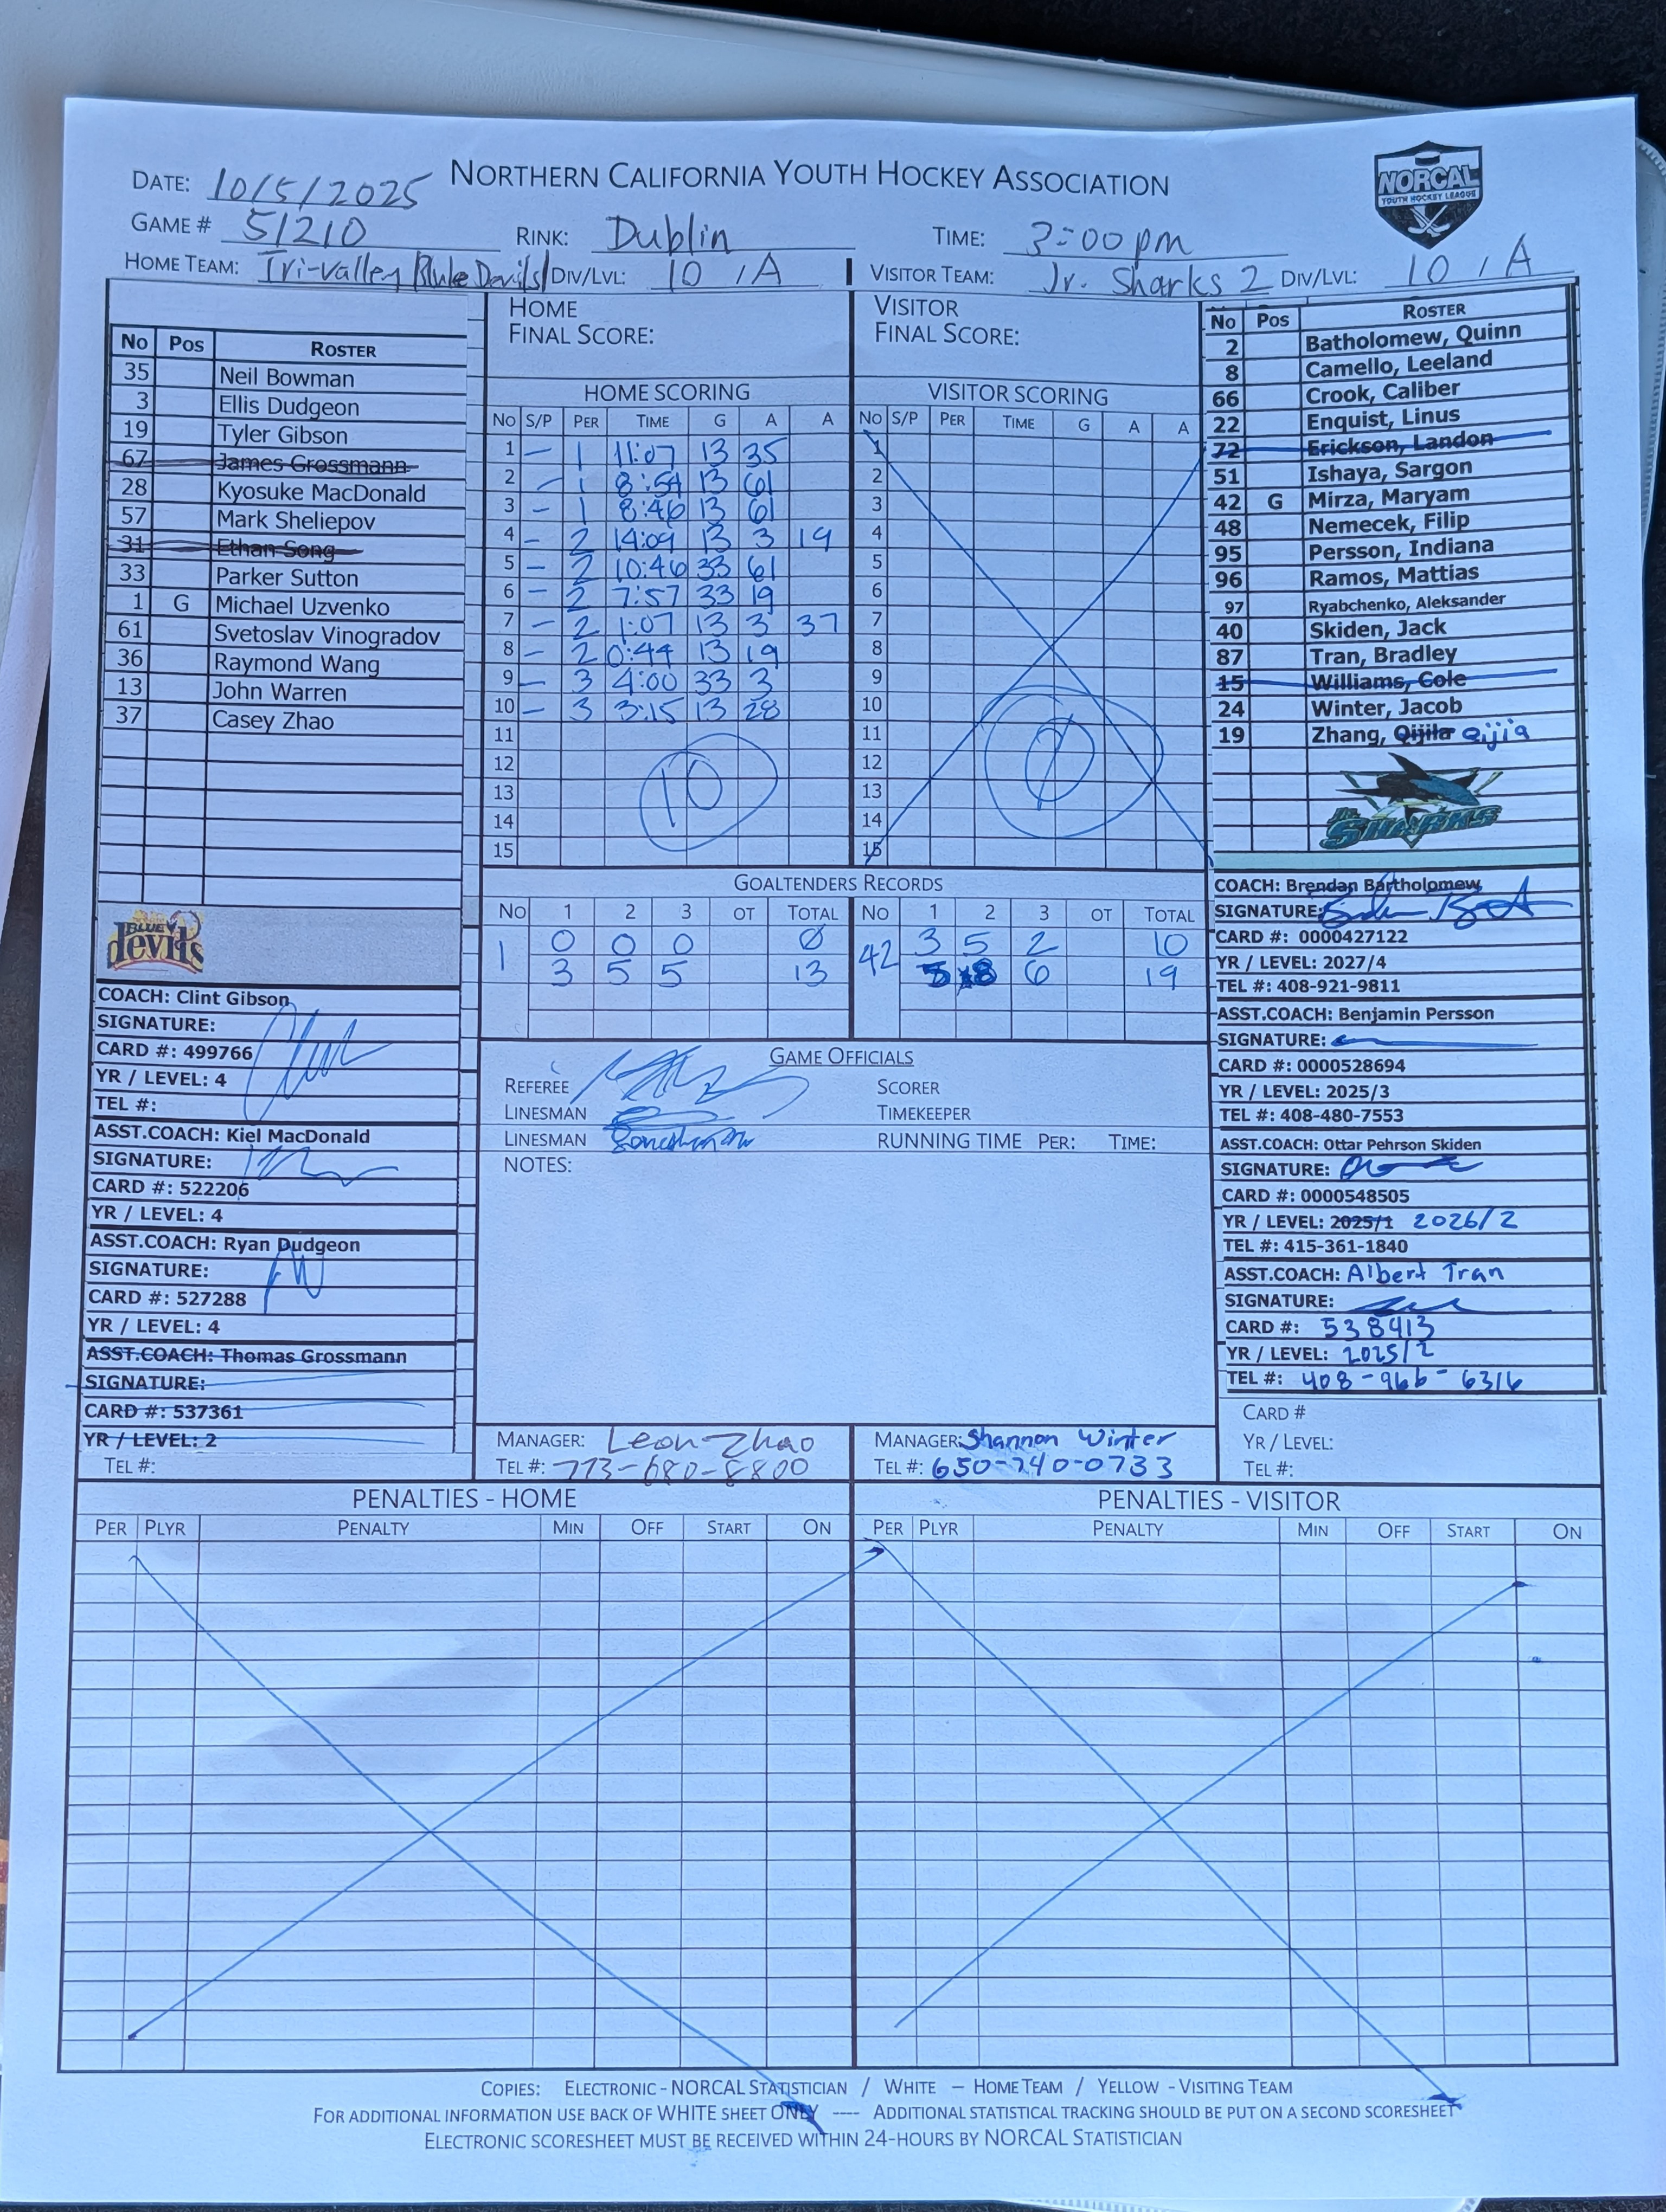 NORTHERN CALIFORNIA YOUTH HOCKEY ASSOCIATION
NORCAL
YOUTH HOCKEY LEAGUE
DATE: 10/5/2025
GAME # 51210 RINK: Dublin TIME: 3:00 pm
HOME TEAM: Tri-Valley Blue Devils DIV/LVL: 10 / A VISITOR TEAM: Jr. Sharks 2 DIV/LVL: 10 / A
No Pos ROSTER
35 Neil Bowman
3 Ellis Dudgeon
19 Tyler Gibson
67 James Grossmann
28 Kyosuke MacDonald
57 Mark Sheliepov
31 Ethan Song
33 Parker Sutton
1 G Michael Uzvenko
61 Svetoslav Vinogradov
36 Raymond Wang
13 John Warren
37 Casey Zhao
BLUE devils
COACH: Clint Gibson
SIGNATURE:
CARD #: 499766
YR / LEVEL: 4
TEL #:
ASST.COACH: Kiel MacDonald
SIGNATURE:
CARD #: 522206
YR / LEVEL: 4
ASST.COACH: Ryan Dudgeon
SIGNATURE:
CARD #: 527288
YR / LEVEL: 4
ASST.COACH: Thomas Grossmann
SIGNATURE:
CARD #: 537361
YR / LEVEL: 2
TEL #:
HOME
FINAL SCORE:
HOME SCORING
NO S/P PER TIME G A A
1 – 1 11:07 13 35
2 – 1 8:54 13 61
3 – 1 8:46 13 61
4 – 2 14:09 13 3 19
5 – 2 10:46 33 61
6 – 2 7:57 33 19
7 – 2 1:07 13 3 37
8 – 2 0:44 13 19
9 – 3 4:00 33 3
10 – 3 3:15 13 28
11
12
13
14
15
10
VISITOR
FINAL SCORE:
VISITOR SCORING
NO S/P PER TIME G A A
1
2
3
4
5
6
7
8
9
10
11
12
13
14
15
0
GOALTENDERS RECORDS
NO 1 2 3 OT TOTAL NO 1 2 3 OT TOTAL
1 0 0 0 0 42 3 5 2 10
3 5 5 13 5 8 6 19
GAME OFFICIALS
REFEREE SCORER
LINESMAN TIMEKEEPER
LINESMAN RUNNING TIME PER: TIME:
NOTES:
MANAGER: Leon Zhao MANAGER: Shannon Winter
TEL #: 773-680-8800 TEL #: 650-740-0733
No Pos ROSTER
2 Batholomew, Quinn
8 Camello, Leeland
66 Crook, Caliber
22 Enquist, Linus
72 Erickson, Landon
51 Ishaya, Sargon
42 G Mirza, Maryam
48 Nemecek, Filip
95 Persson, Indiana
96 Ramos, Mattias
97 Ryabchenko, Aleksander
40 Skiden, Jack
87 Tran, Bradley
15 Williams, Cole
24 Winter, Jacob
19 Zhang, Qijila Qijia
JR. SHARKS
COACH: Brendan Bartholomew
SIGNATURE:
CARD #: 0000427122
YR / LEVEL: 2027/4
TEL #: 408-921-9811
ASST.COACH: Benjamin Persson
SIGNATURE:
CARD #: 0000528694
YR / LEVEL: 2025/3
TEL #: 408-480-7553
ASST.COACH: Ottar Pehrson Skiden
SIGNATURE:
CARD #: 0000548505
YR / LEVEL: 2025/1 2026/2
TEL #: 415-361-1840
ASST.COACH: Albert Tran
SIGNATURE:
CARD #: 538413
YR / LEVEL: 2025/2
TEL #: 408-966-6316
CARD #
YR / LEVEL:
TEL #:
PENALTIES - HOME PENALTIES - VISITOR
PER PLYR PENALTY MIN OFF START ON PER PLYR PENALTY MIN OFF START ON
COPIES: ELECTRONIC - NORCAL STATISTICIAN / WHITE – HOME TEAM / YELLOW - VISITING TEAM
FOR ADDITIONAL INFORMATION USE BACK OF WHITE SHEET ONLY ---- ADDITIONAL STATISTICAL TRACKING SHOULD BE PUT ON A SECOND SCORESHEET
ELECTRONIC SCORESHEET MUST BE RECEIVED WITHIN 24-HOURS BY NORCAL STATISTICIAN